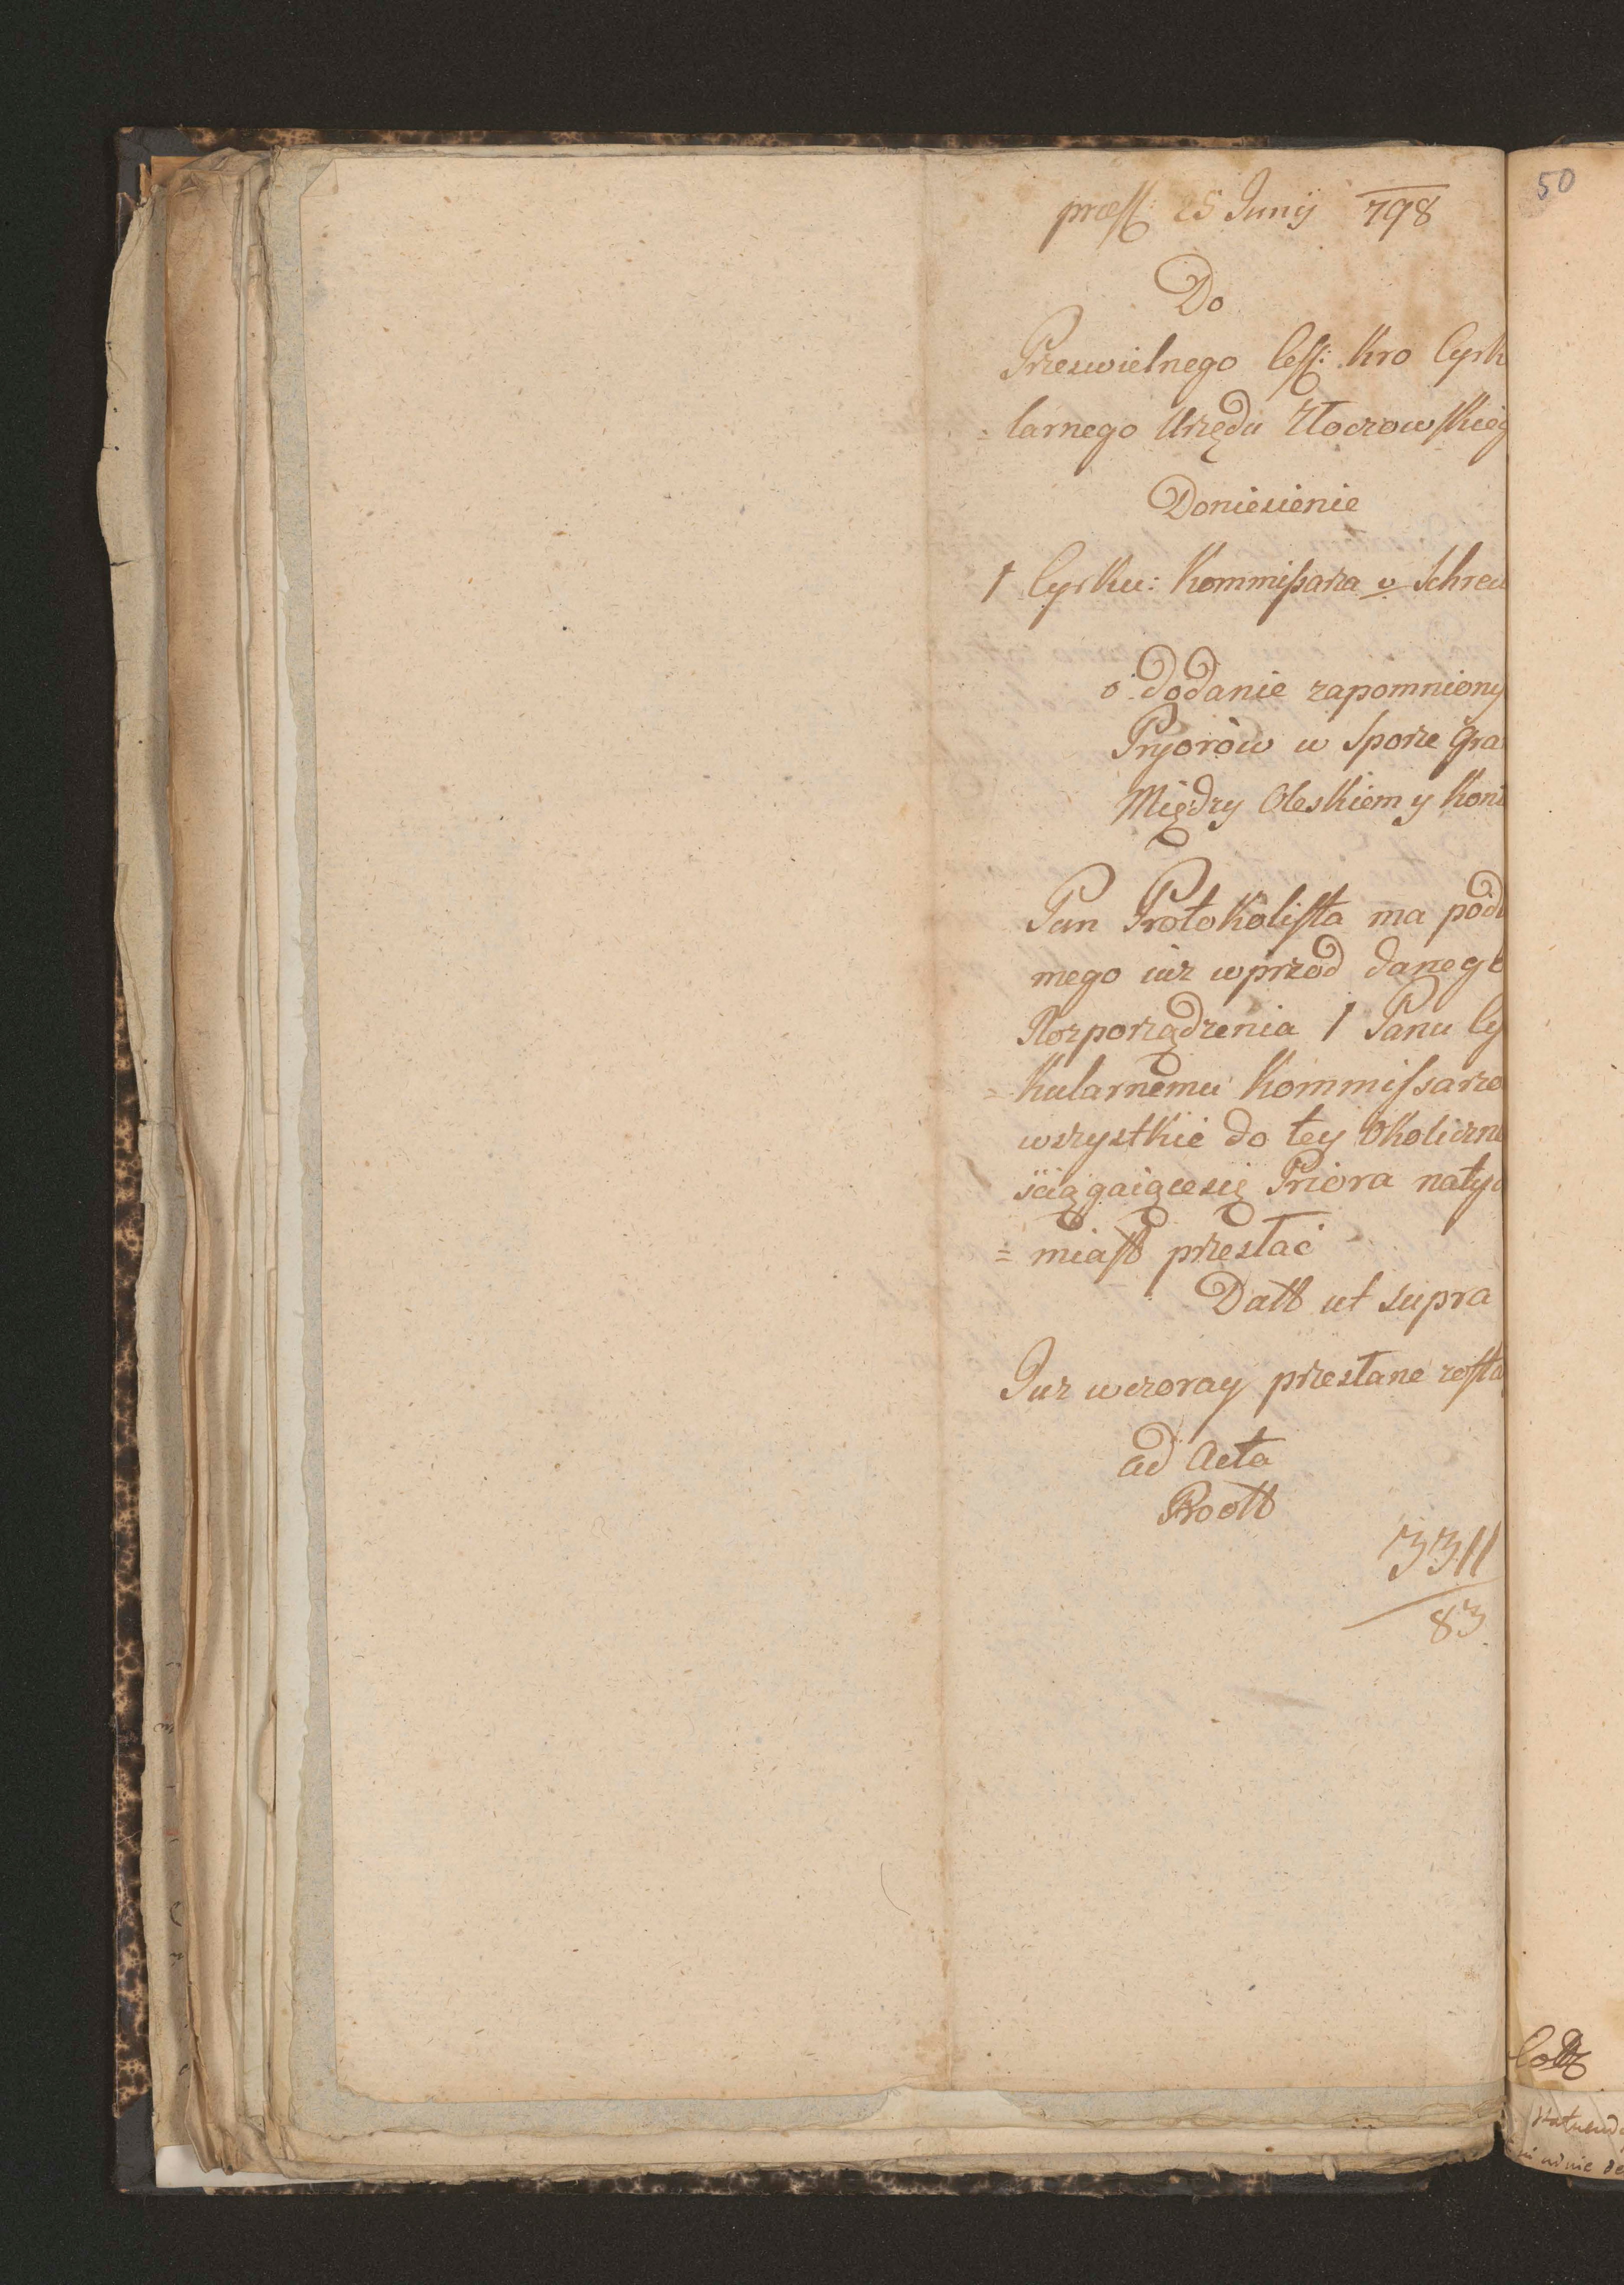 præss: 25 Junij 798
Do
Przeswielnego Cess: Kro Cyrk
=larnego Urzędu Złoczowskieg
Doniesienie
1 Cyrku: Kommissarza v Schreu
o dodanie zapomniony
Pryorów w Sporze Gra
Między Oleskiem y Koni
Pan Protokolista ma podł
mego iuz wprzod danego
Rozporządzenia 1 Panu Cy
=kularnemu Kommissarzo
wszystkie do tey Okoliczno
sciągaiącesię Priora natyc
=miast przesłać
Datt ut supra
Juz wczoray przesłane zosta
ad Acta
3311
83
50